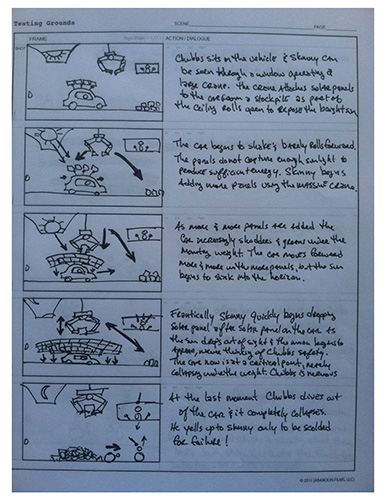 Testing Grounds
SCENE
PAGE
FRAME
ACTION / DIALOGUE
SHOT
Chubbs sits in the vehicle & Skinny can
be seen through a window operating a
large crane. The crane attaches solar panels
to the car from a stockpile as part of
the ceiling rolls open to expose the bright sun
The car begins to shake & barely rolls forward.
The panels do not capture enough sunlight to
produce sufficient energy. Skinny begins
adding more panels using the massive crane.
As more & more panels are added the
car increasingly shudders & groans under the
mounting weight. The car moves forward
more & more with more panels, but the sun
begins to sink into the horizon.
Frantically Skinny quickly begins dropping
solar panel after solar panel on the car as
the sun drops out of sight & the moon begins to
appear, never thinking of Chubbs safety.
The car now is at a critical point, nearly
collapsing under the weight. Chubbs is nervous
At the last moment Chubbs dives out
of the car & it completely collapses.
He yells up to Skinny only to be scolded
for failure!
© 2011 JABAROON FILMS, LLC